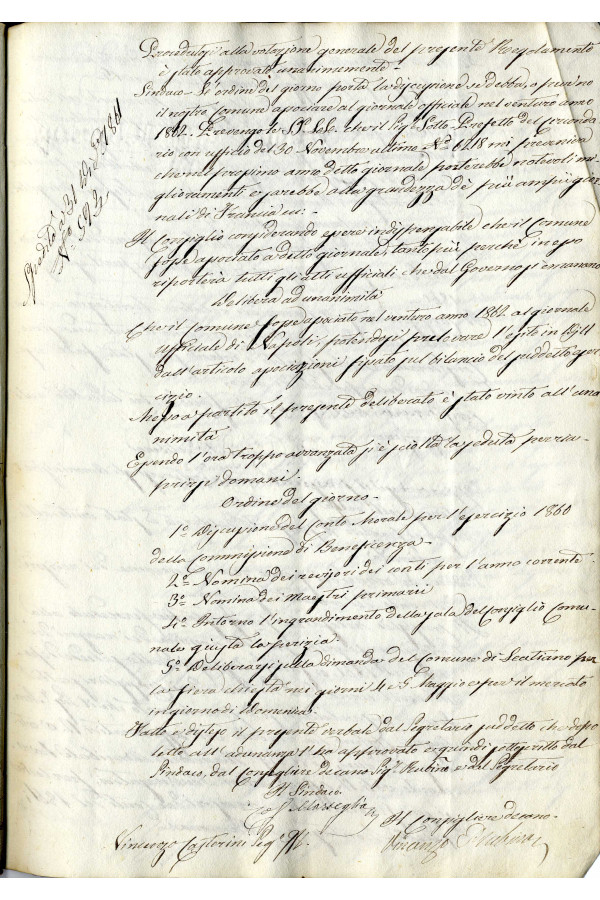 Procedutosi alla votazione generale del presente Regolamento
è stato approvato unanimemente.
Sindaco - L'ordine del giorno porta la discussione se debba, o pur no
il nostro Comune associarsi al giornale officiale nel venturo anno
1862. Prevengo le SS. LL. che il Sig.r Sotto-Prefetto del circonda
rio con ufficio del 30 Novembre ultimo N.o 6218 mi
che nel prossimo anno detto giornale porterebbe notevoli mi
glioramenti e sarebbe alla grandezza de' più ampii gior
nali di Francia
Il Consiglio considerando essere indispensabile che il Comune
fosse associato a detto giornale, tantopiù perché in esso
riporterà tutti gli atti ufficiali che dal Governo si emanano
Delibera ad unanimità
Che il Comune fosse associato nel venturo anno 1862 al giornale
ufficiale di Napoli, potendosi prelevare l'esito in
dall'articolo associazioni fissato sul bilancio del suddetto eser
cizio.
Messo a partito il presente deliberato è stato vinto all'una
nimità
Essendo l'ora troppo avanzata si è sciolta la seduta per riu-
nirsi domani.
Ordine del giorno.
1.o Discussione del Conto Morale per l'esercizio 1860
della Commissione di Beneficenza.
2.o Nomina dei revisori dei conti per l'anno corrente.
3.o Nomina dei Maestri primarii
4.o Intorno l'ingrandimento della sala del Consiglio Comu-
nale giusta la perizia.
5.o Deliberarsi sulla dimanda del Comune di per
la fiera chiesta nei giorni 4 e 5 Maggio e per il mercato
in giorno di Domenica.
Fatto e disteso il presente verbale dal Segretario suddetto che dopo
letto all'adunanza l'ha approvato e quindi sottoscritto dal
Sindaco, dal Consigliere decano Sig.r Rubino e dal Segretario
Il Sindaco
Marseglia
Il Consigliere decano
Vincenzo Rubino
Vincenzo
Spedito a 31 1861
N.o 592